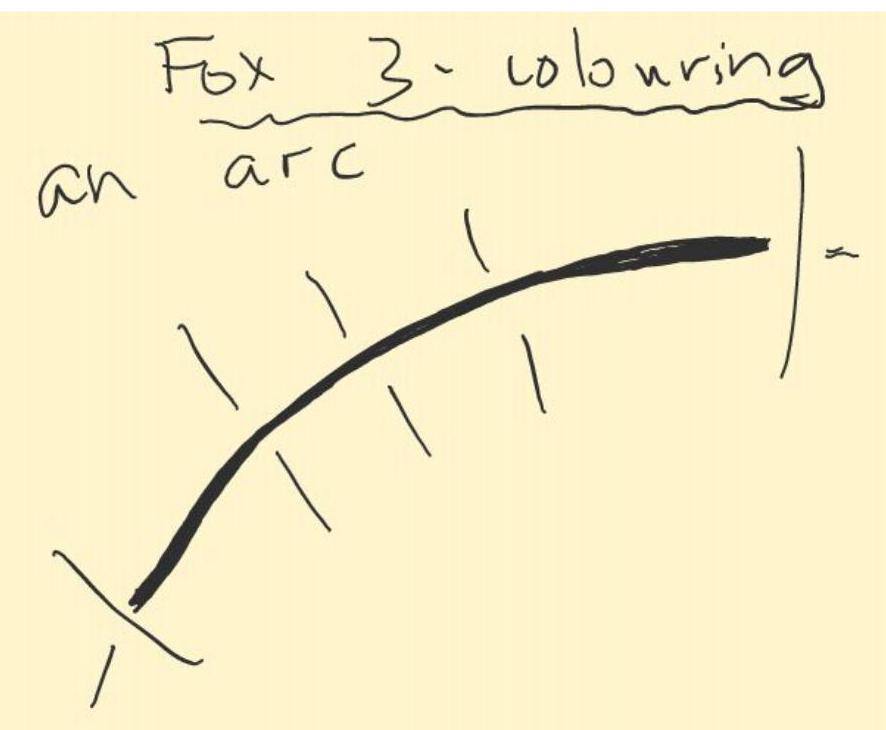 Fox 3-colouring
an arc